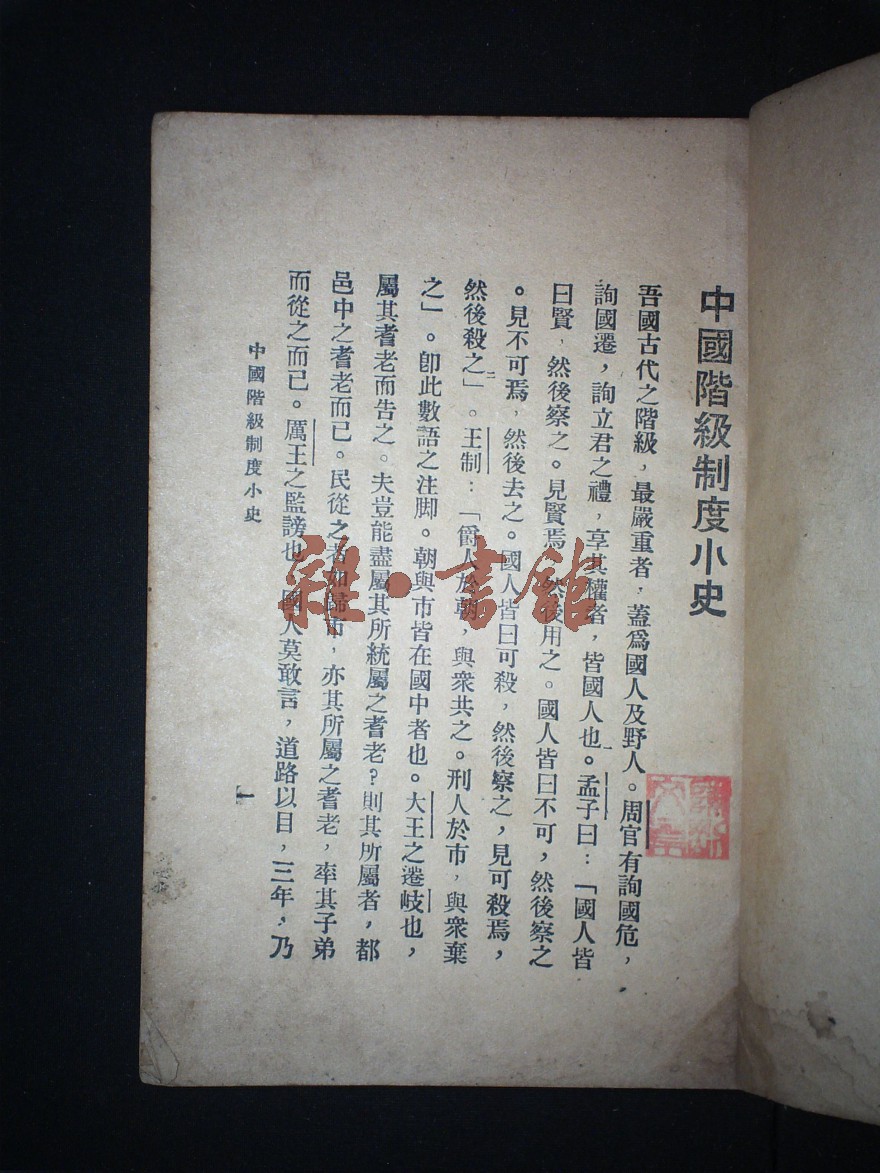 中國階級制度小史
吾國古代之階級，最嚴重者，蓋爲國人及野人。周官有詢國危，
詢國遷，詢立君之禮，享其權者，皆國人也。孟子曰：「國人皆
曰賢，然後察之。見賢焉，然後用之。國人皆曰不可，然後察之
。見不可焉，然後去之。國人皆曰可殺，然後察之，見可殺焉，
然後殺之」。王制：「爵人於朝，與衆共之。刑人於市，與衆棄
之」。卽此數語之注脚。朝與市皆在國中者也。大王之遷岐也，
屬其耆老而告之。夫豈能盡屬其所統屬之耆老？則其所屬者，都
邑中之耆老而已。民從之者如歸市，亦其所屬之耆老，率其子弟
而從之而已。厲王之監謗也，國人莫敢言，道路以目，三年，乃
中國階級制度小史
一
雜·書館